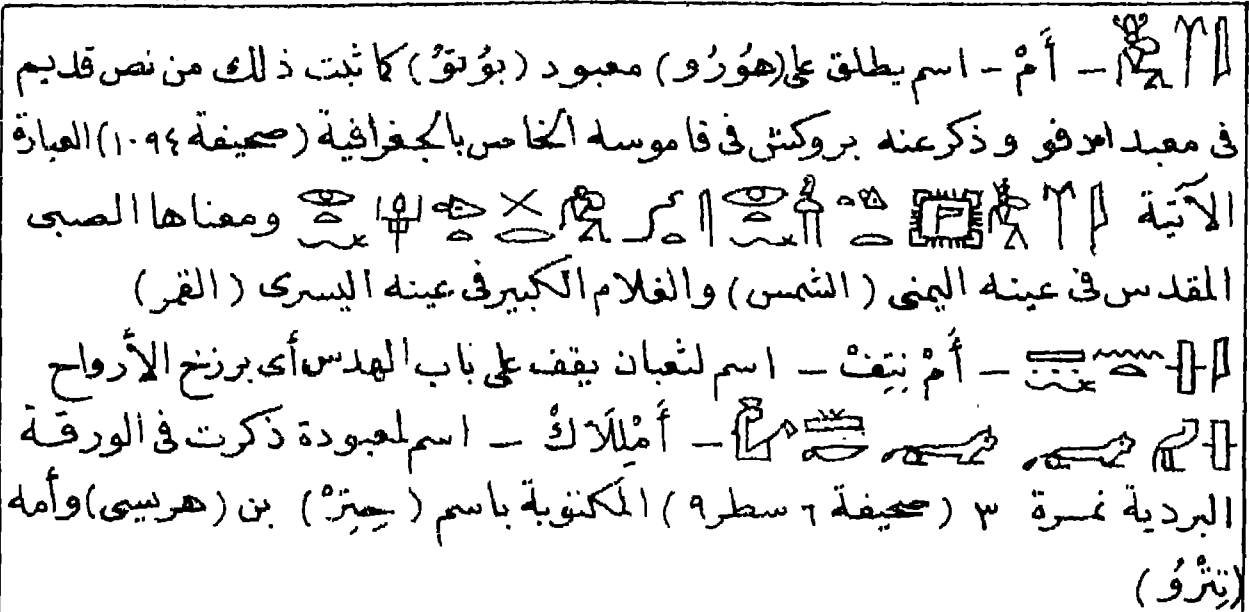 – أَمْ – اسم يطلق على (هوُرُو) معبود (بوُتوُ) كما ثبت ذلك من نص قديم
فى معبد ادفو وذكر عنه بروكش فى قاموسه الخاص بالجغرافية (صحيفة ١٠٩٤) العبارة
الآتية ومعناها الصبى
المقدس فى عينه اليمنى (الشمس) والغلام الكبير فى عينه اليسرى (القمر)
– أَمْ نِتِفْ – اسم لثعبان يقف على باب الهدس أى برزخ الأرواح
– أَمْلِلَاكْ – اسم لمعبودة ذكرت فى الورقة
البردية نمرة ٣ (صحيفة ٦ سطر ٩) المكتوبة باسم (حِتِرْ) بن (هرسيسى) وأمه
(تِتْرُو)